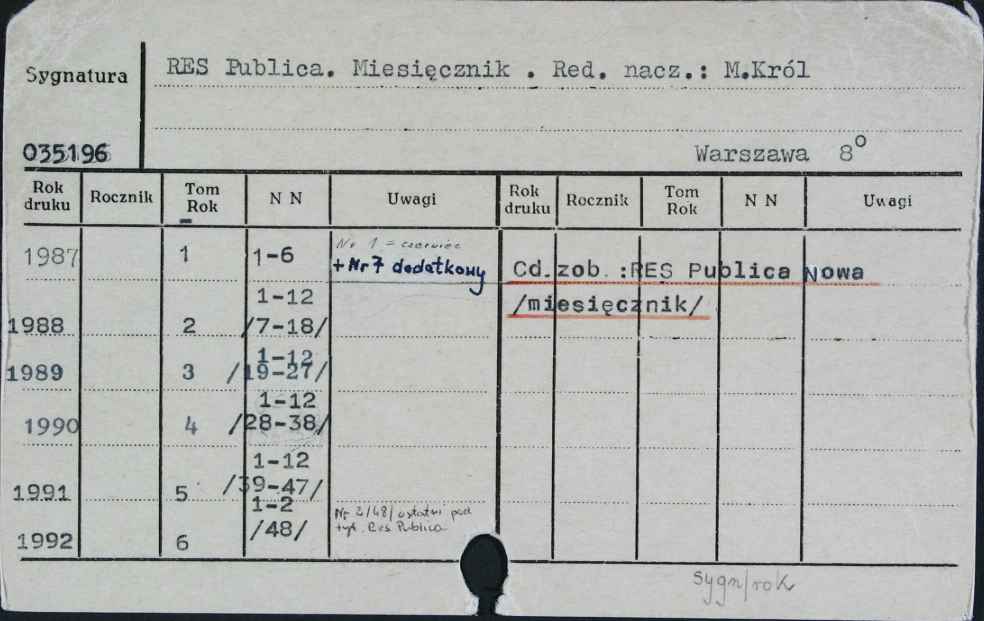 Sygnatura
RES Publica. Miesięcznik . Red. nacz.: M.Król
035196
Warszawa 8o
Rok druku Rocznik Tom Rok N N Uwagi Rok druku Rocznik Tom Rok N N Uwagi
1987 1 1-6 Nr 1 = czerwiec
+ Nr 7 dodatkowy
Cd.zob.:RES Publica Nowa
/miesięcznik/
1-12
1988 2 /7-18/
1-12
1989 3 /19-27/
1-12
1990 4 /28-38/
1-12
1991 5 /39-47/
1-2
1992 6 /48/
Nr 2/48/ ostatni pod
tyt. Res Publica
sygn/rok